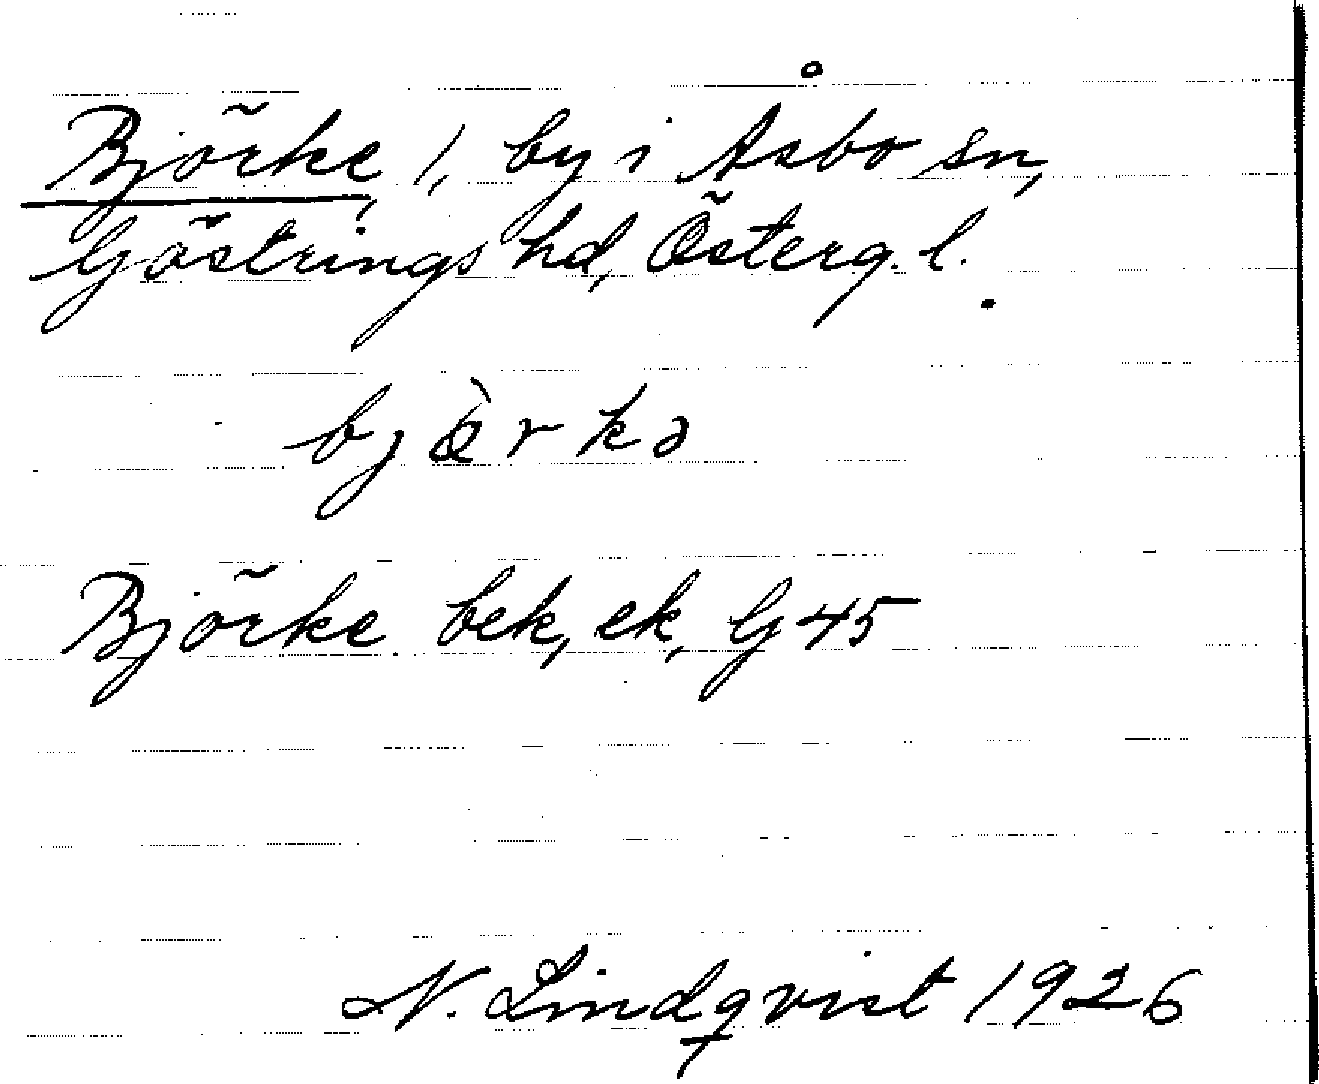 Björke, 1, by i Åsbo sn,
Göstrings hd, Österg. l.
bjæ̀rkə
Björke bek, ek, G 45
N. Lindqvist 1926